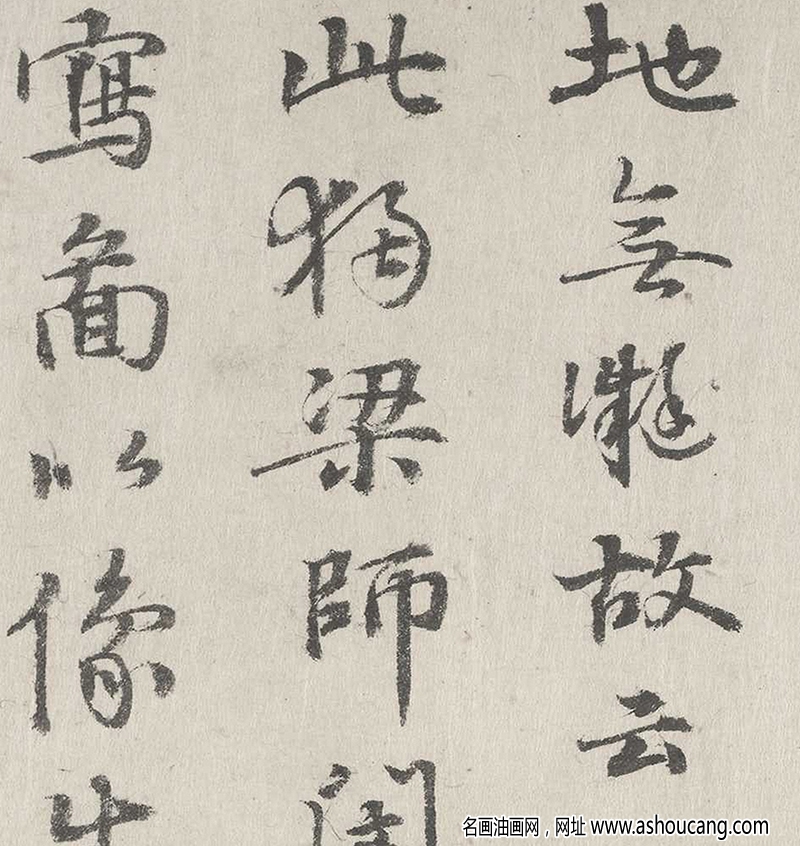 地無故云
此獨梁師
寫啚以像
名画油画网，网址 www.ashoucang.com